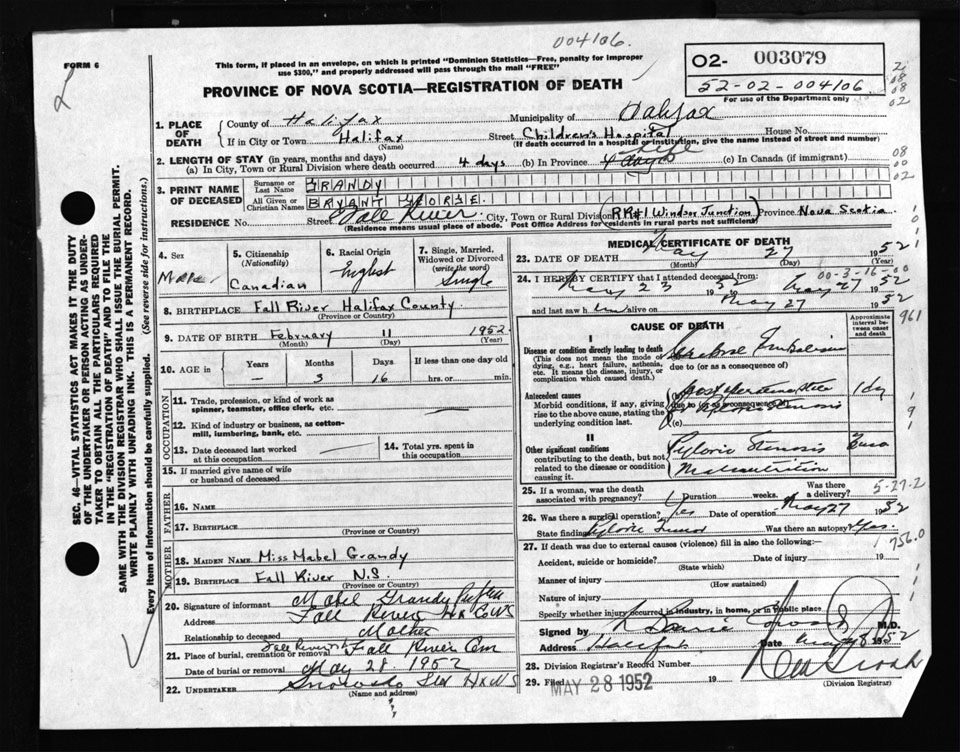 004106.
FORM 6
This form, if placed in an envelope, on which is printed "Dominion Statistics—Free, penalty for improper use $300," and properly addressed will pass through the mail "FREE"
O2- 003079
52-02-004106
For use of the Department only
PROVINCE OF NOVA SCOTIA—REGISTRATION OF DEATH
1. PLACE OF DEATH
County of Halifax Municipality of Halifax
If in City or Town Halifax Street Children's Hospital House No.
(Name) (If death occurred in a hospital or institution, give the name instead of street and number)
2. LENGTH OF STAY (in years, months and days)
(a) In City, Town or Rural Division where death occurred 4 days (b) In Province life (c) In Canada (if immigrant)
3. PRINT NAME OF DECEASED
Surname or Last Name GRANDY
All Given or Christian Names BRYANT GEORGE
RESIDENCE No. Street Fall River City, Town or Rural Division RR#1 Windsor Junction Province Nova Scotia
(Residence means usual place of abode. Post Office Address for residents in rural parts not sufficient)
4. SEX Male
5. CITIZENSHIP (Nationality) Canadian
6. Racial Origin English
7. Single, Married, Widowed or Divorced (write the word) Single
8. BIRTHPLACE Fall River Halifax County
(Province or Country)
9. DATE OF BIRTH February 11 1952
(Month) (Day) (Year)
10. AGE in Years — Months 3 Days 16 If less than one day old hrs. or min.
OCCUPATION
11. Trade, profession, or kind of work as spinner, teamster, office clerk, etc.
12. Kind of industry or business, as cotton-mill, lumbering, bank, etc.
13. Date deceased last worked at this occupation
14. Total yrs. spent in this occupation
15. If married give name of wife or husband of deceased
FATHER
16. NAME
17. BIRTHPLACE
(Province or Country)
MOTHER
18. MAIDEN NAME Miss Mabel Grandy
19. BIRTHPLACE Fall River N.S.
(Province or Country)
20. Signature of informant Mabel Grandy
Address Fall River Hx Co NS
Relationship to deceased Mother
21. Place of burial, cremation or removal Fall River Cem
Date of burial or removal May 28. 1952
22. UNDERTAKER Snows Ltd Hx NS
(Name and address)
MEDICAL CERTIFICATE OF DEATH
23. DATE OF DEATH May 27 1952
(Month) (Day) (Year)
00-3-16-00
24. I HEREBY CERTIFY that I attended deceased from
May 23 1952 to May 27 1952
and last saw him alive on May 27 1952
CAUSE OF DEATH
Approximate interval between onset and death
I
Disease or condition directly leading to death
(This does not mean the mode of dying, e.g., heart failure, asthenia, etc. It means the disease, injury, or complication which caused death.)
Cerebral Embolism
due to (or as a consequence of)
Antecedent causes
Morbid conditions, if any, giving rise to the above cause, stating the underlying condition last.
(b)
due to (or as a consequence of)
(c)
1 dy
II
Other significant conditions
contributing to the death, but not related to the disease or condition causing it.
Pyloric Stenosis
Malnutrition
961
25. If a woman, was the death associated with pregnancy? Duration weeks. Was there a delivery?
5-27-2
26. Was there a surgical operation? Yes Date of operation May 27 1952
State findings Pyloric Tumor Was there an autopsy? Yes.
756.0
27. If death was due to external causes (violence) fill in also the following:
Accident, suicide or homicide? Date of injury 19
(State which)
Manner of injury
(How sustained)
Nature of injury
Specify whether injury occurred in industry, in home, or in public place
Signed by M.D.
Address Halifax Date May 28 1952
28. Division Registrar's Record Number
29. Filed MAY 28 1952 19
(Division Registrar)
SEC. 46—VITAL STATISTICS ACT MAKES IT THE DUTY OF THE UNDERTAKER OR PERSON ACTING AS UNDERTAKER TO OBTAIN ALL THE PARTICULARS REQUIRED IN THE "REGISTRATION OF DEATH" AND TO FILE THE SAME WITH THE DIVISION REGISTRAR WHO SHALL ISSUE THE BURIAL PERMIT.
WRITE PLAINLY WITH UNFADING INK. THIS IS A PERMANENT RECORD.
Every item of information should be carefully supplied. (See reverse side for instructions.)